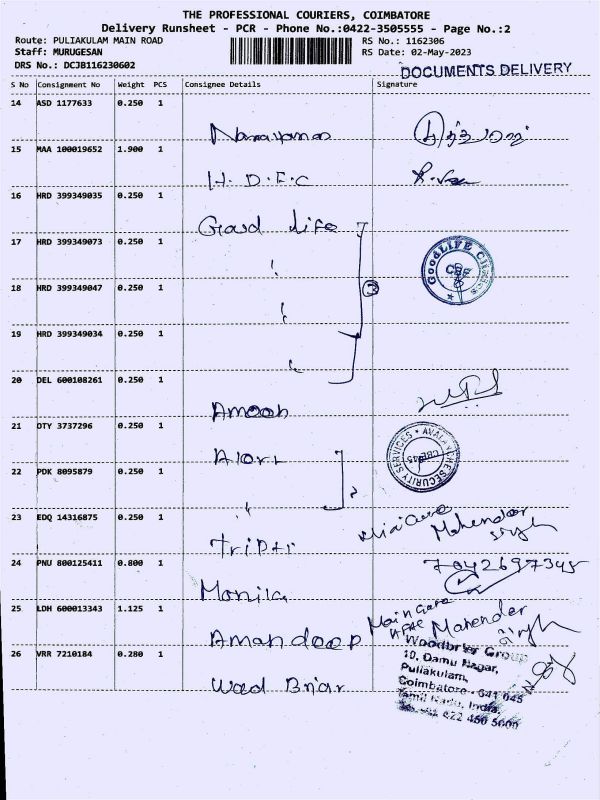 THE PROFESSIONAL COURIERS, COIMBATORE
Delivery Runsheet - PCR - Phone No.:0422-3505555 - Page No.:2
Route: PULIAKULAM MAIN ROAD RS No.: 1162306
Staff: MURUGESAN RS Date: 02-May-2023
DRS No.: DCJB116230602
DOCUMENTS DELIVERY
S No Consignment No Weight PCS Consignee Details Signature
14 ASD 1177633 0.250 1
Narayanan
15 MAA 100019652 1.900 1
H.D.F.C
16 HRD 399349035 0.250 1
Good Life
17 HRD 399349073 0.250 1
GOODLIFE
CBE
18 HRD 399349047 0.250 1
3
19 HRD 399349034 0.250 1
20 DEL 600108261 0.250 1
Amoob
21 DTY 3737296 0.250 1
Alort
AVALANCHE SECURITY SERVICES
22 PDK 8095879 0.250 1
2
23 EDQ 14316875 0.250 1
Tripti
Mahender
Singh
24 PNU 800125411 0.800 1
7042697345
Monika
25 LDH 600013343 1.125 1
Main Gate
Mahender
Singh
Amandeep
26 VRR 7210184 0.280 1
Wood Briar
Woodbriar Group
10, Damu Nagar,
Puliakulam,
Coimbatore - 641 045
Tamil Nadu, India.
422 450 5000